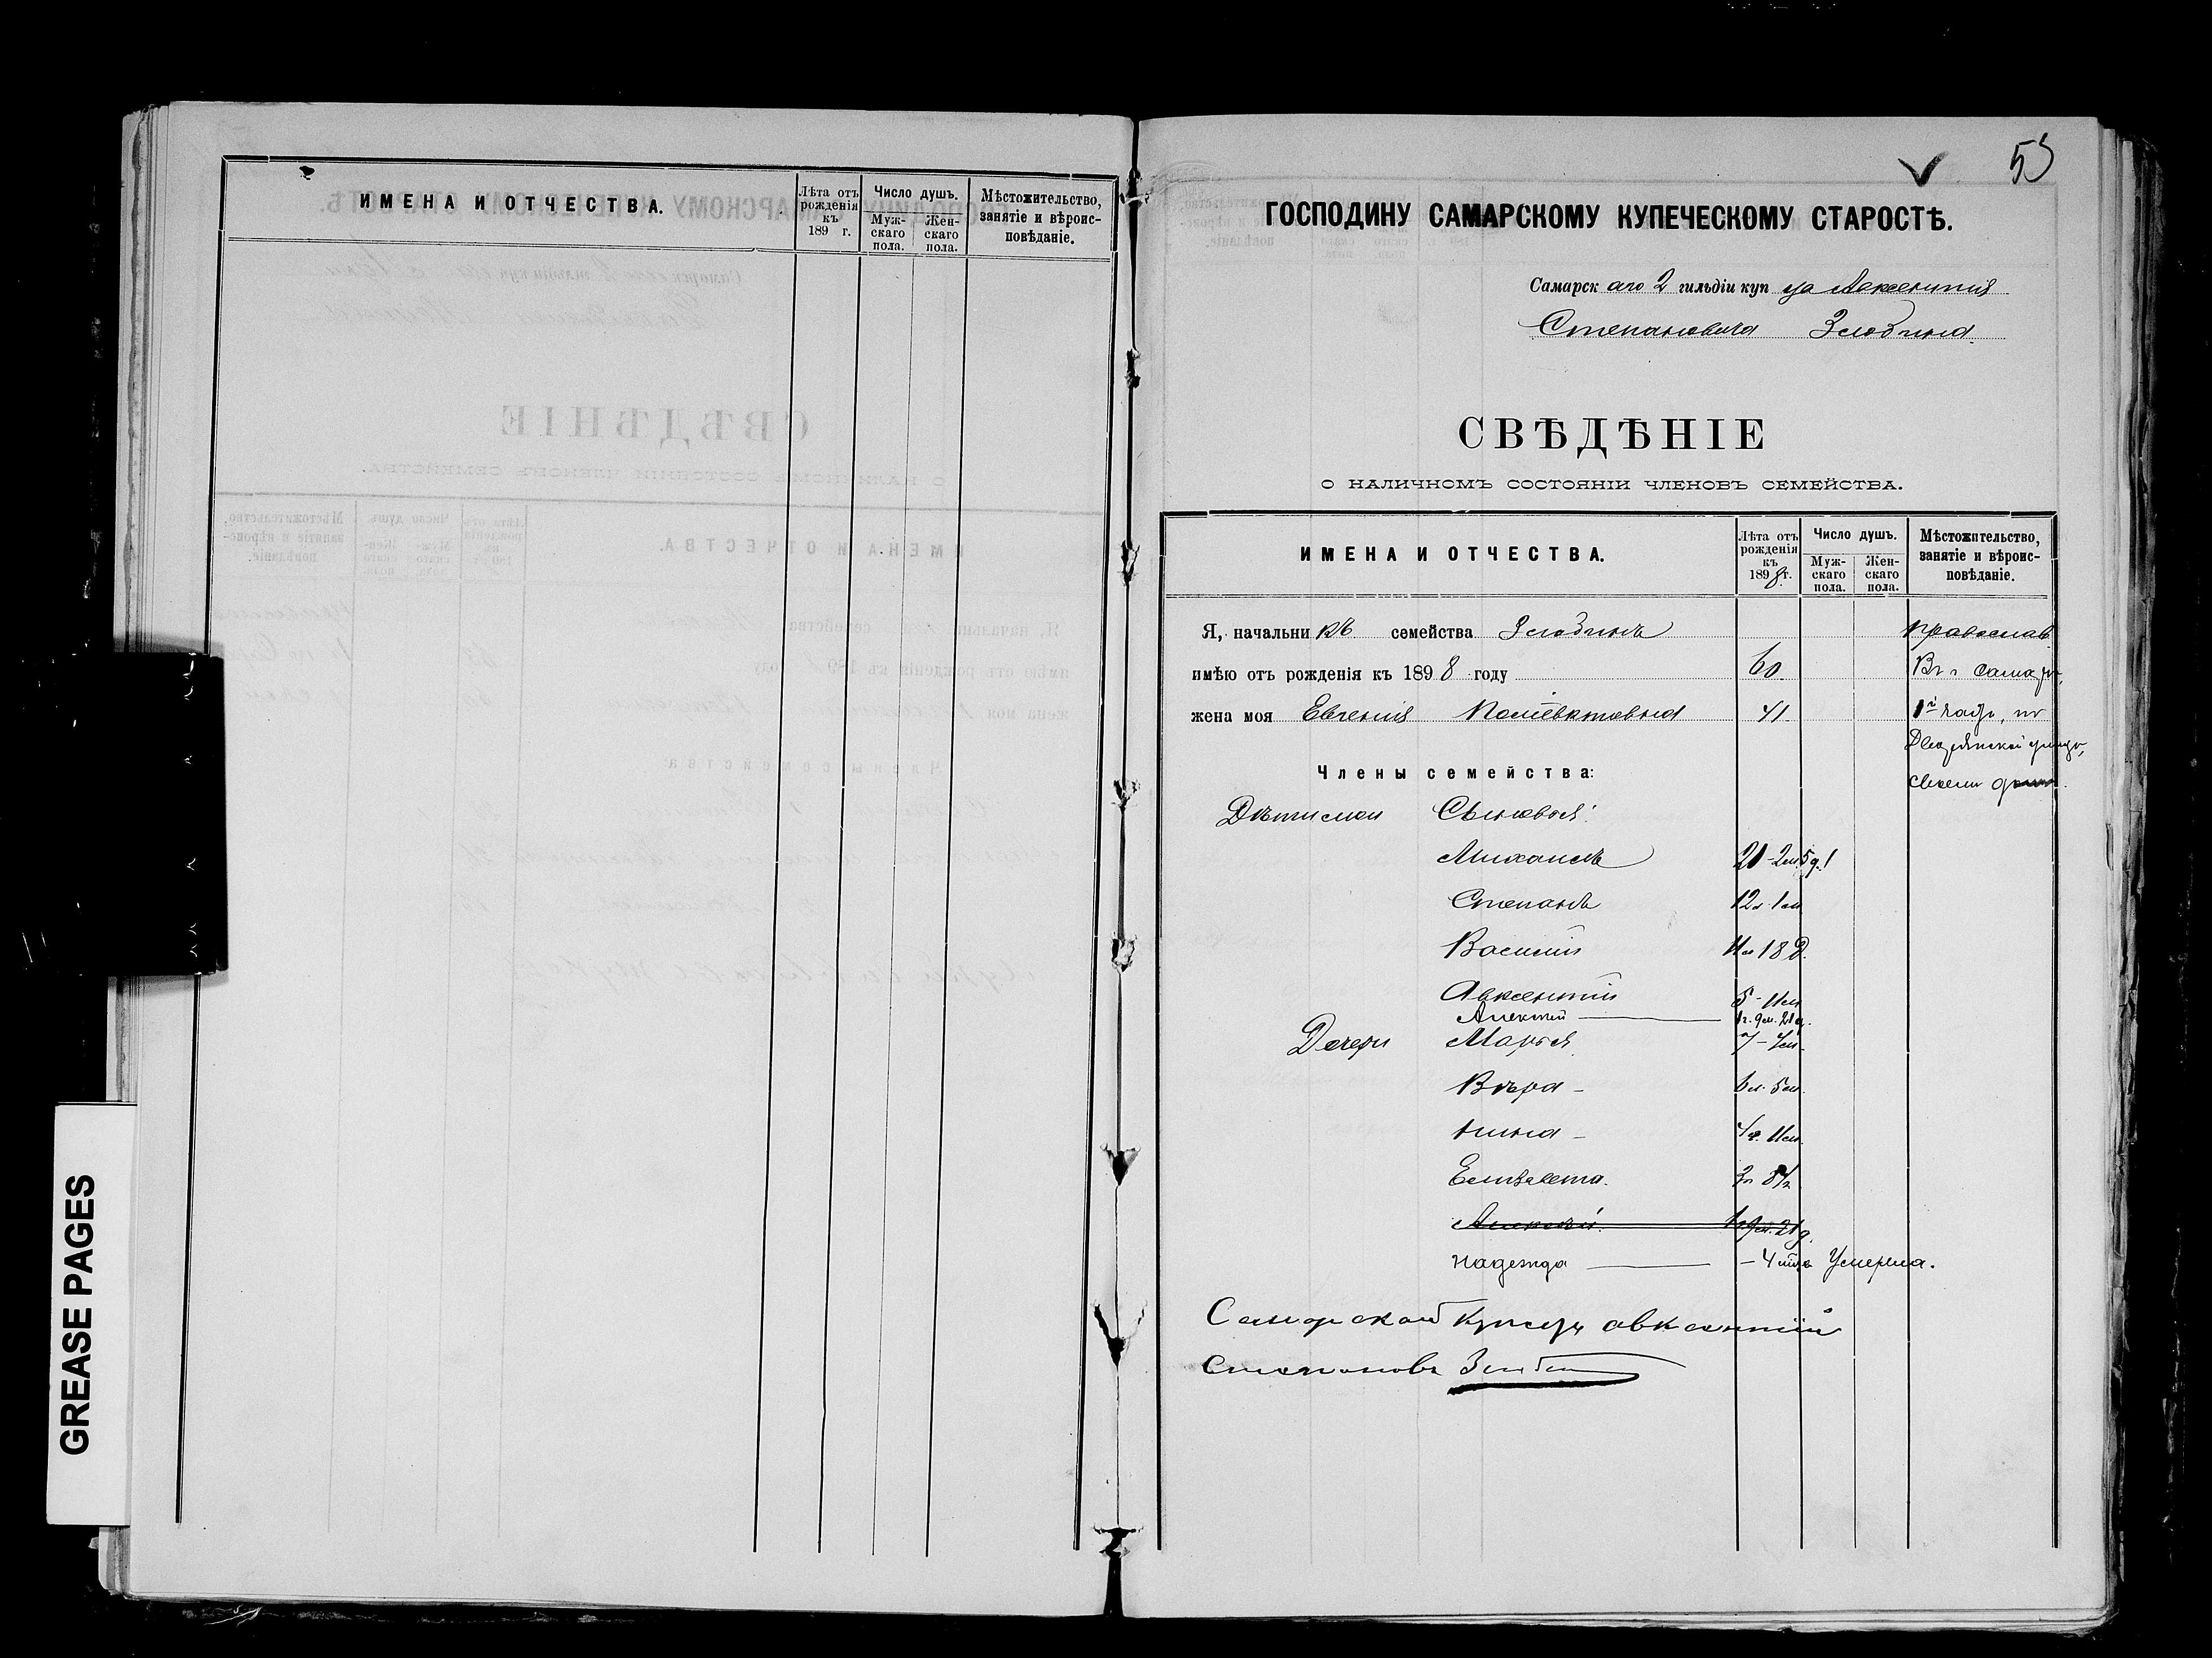 ИМЕНА И ОТЧЕСТВА.
Лѣта отъ рожденія къ 189 г.
Число душъ.
Муж-скаго пола.
Жен-скаго пола.
Мѣстожительство, занятіе и вѣроис-повѣданіе.
GREASE PAGES
53
ГОСПОДИНУ САМАРСКОМУ КУПЕЧЕСКОМУ СТАРОСТѢ.
Самарск аго 2 гильдіи куп ца Авксентия
Степановича Злобина
СВѢДѢНІЕ
О НАЛИЧНОМЪ СОСТОЯНІИ ЧЛЕНОВЪ СЕМЕЙСТВА.
ИМЕНА И ОТЧЕСТВА.
Лѣта отъ рожденія къ 1898 г.
Число душъ.
Муж-скаго пола.
Жен-скаго пола.
Мѣстожительство, занятіе и вѣроис-повѣданіе.
Я, начальни къ семейства Злобинъ православ
имѣю отъ рожденія къ 1898 году 60. Въ г Самарѣ,
жена моя Евгенія 41. 1й части, по
Дворянской улицѣ,
Члены семейства:
своемъ домѣ.
Дѣти мои Сыновья:
Михаилъ 21-2м. 5д.
Степанъ 12л 1м
Василій 11л 18д.
Авксентий 5-11м
Алексѣй 1г. 9м. 21д.
Дочери Марья 7-7м.
Вѣра - 6л. 5м.
Нина - 4г. 11м.
Елизавета. 3г 8½
Алексѣй. 1г 9м. 21д.
Надежда - 4 Умерла.
Самарской Купецъ Авксентий
Степановъ Злобин